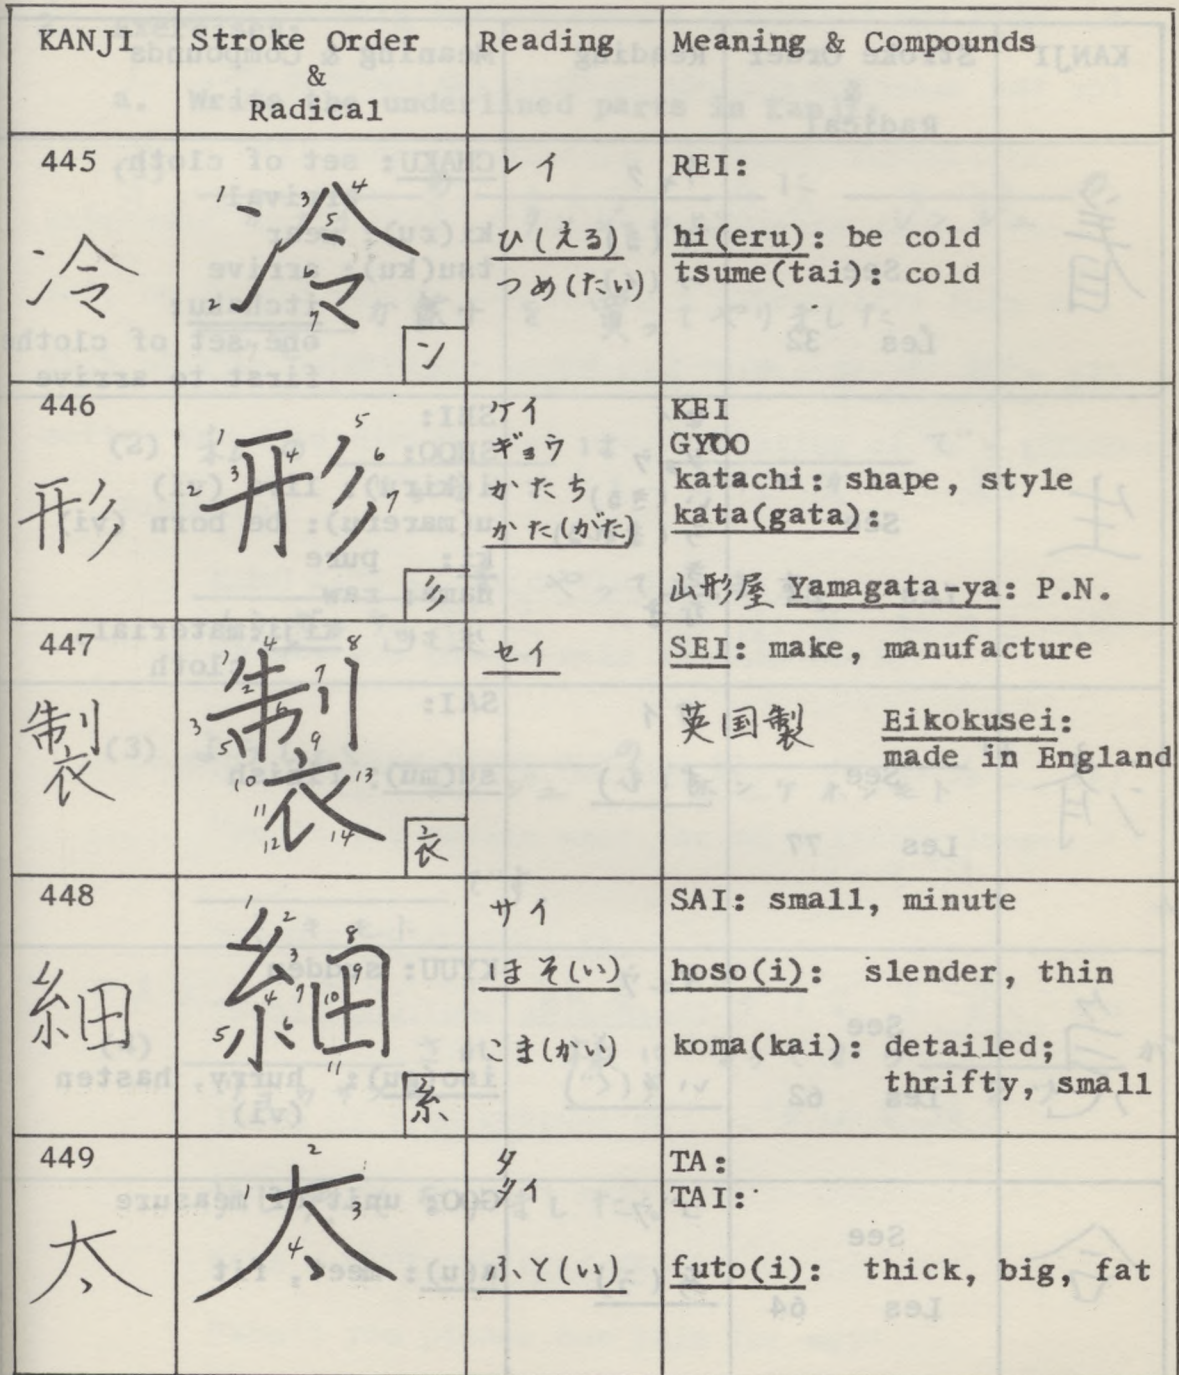 KANJI Stroke Order Reading Meaning & Compounds
&
Radical
445
冷
1 2 3 4 5 6 7
冷
冫
レイ
ひ(える)
つめ(たい)
REI:
hi(eru): be cold
tsume(tai): cold
446
形
1 2 3 4 5 6 7
形
彡
ケイ
ギョウ
かたち
かた(がた)
KEI
GYOO
katachi: shape, style
kata(gata):
山形屋 Yamagata-ya: P.N.
447
製
1 2 3 4 5 6 7 8 9 10 11 12 13 14
製
衣
セイ
SEI: make, manufacture
英国製 Eikokusei:
made in England
448
細
1 2 3 4 5 6 7 8 9 10 11
細
糸
サイ
ほそ(い)
こま(かい)
SAI: small, minute
hoso(i): slender, thin
koma(kai): detailed;
thrifty, small
449
太
1 2 3 4
太
タ
タイ
ふと(い)
TA:
TAI:
futo(i): thick, big, fat